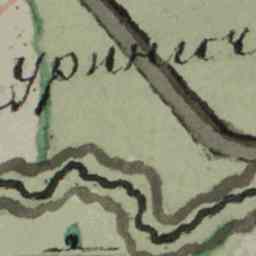 уринич